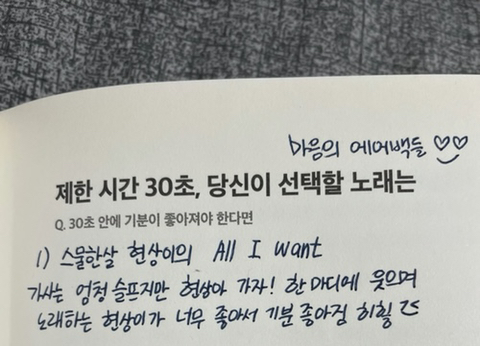 마음의 에어백들 ♡♡
제한 시간 30초, 당신이 선택할 노래는
Q. 30초 안에 기분이 좋아져야 한다면
1) 스물한살 현상이의 All I want
가사는 엄청 슬프지만 현상아 가자! 한 마디에 웃으며
노래하는 현상이가 너무 좋아서 기분 좋아짐 히힣